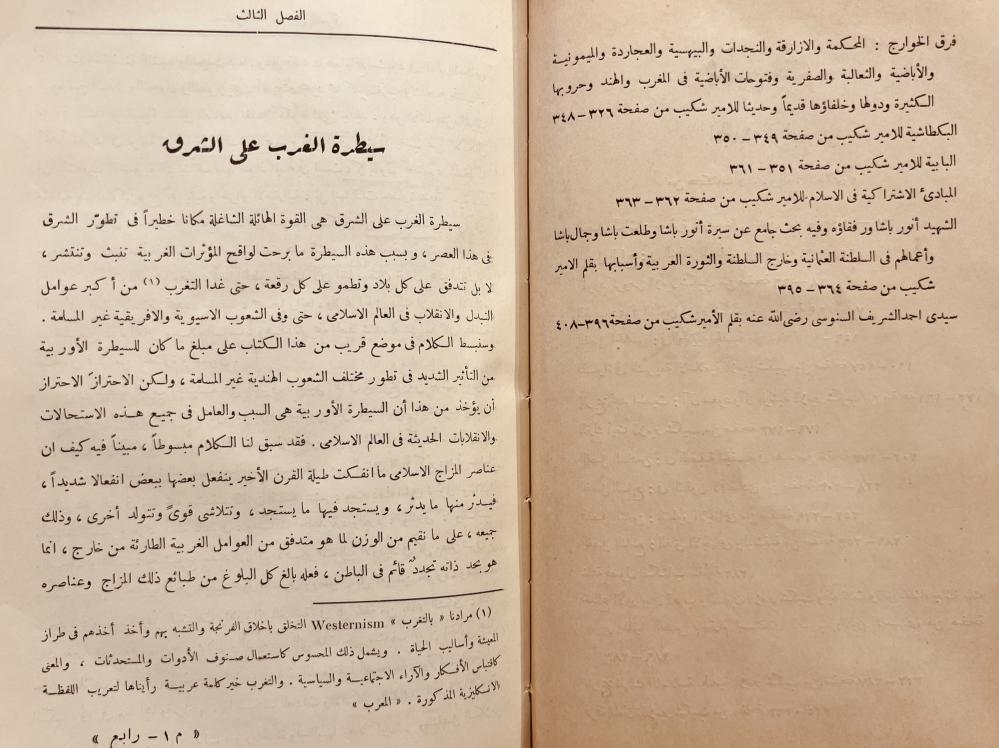 فرق الخوارج : المحكمة والازارقة والنجدات والبيهسية والعجاردة والميمونية
والأباضية والثعالبة والصفرية وفتوحات الأباضية فى المغرب والهند وحروبها
الكثيرة ودولها وخلفاؤها قديماً وحديثا للامير شكيب من صفحة ٣٢٦ – ٣٤٨
البكطاشية للامير شكيب من صفحة ٣٤٩ – ٣٥٠
البابية للامير شكيب من صفحة ٣٥١ – ٣٦١
المبادئ الاشتراكية فى الاسلام للامير شكيب من صفحة ٣٦٢ – ٣٦٣
الشهيد أنور باشا ورفقاؤه وفيه بحث جامع عن سيرة أنور باشا وطلعت باشا وجمال باشا
وأعمالهم فى السلطنة العثمانية وخارج السلطنة والثورة العربية وأسبابها بقلم الامير
شكيب من صفحة ٣٦٤ – ٣٩٥
سيدى احمد الشريف السنوسى رضى الله عنه بقلم الأمير شكيب من صفحة ٣٩٦–٤٠٨
الفصل الثالث
سيطرة الغرب على الشرق
سيطرة الغرب على الشرق هى القوة الهائلة الشاغلة مكانا خطيراً فى تطوّر الشرق
فى هذا العصر ، و بسبب هذه السيطرة ما برحت لواقح المؤثرات الغربية تنبث وتنتشر ،
لا بل تتدفق على كل بلاد وتطمو على كل رقعة ، حتى غدا التغرب (١) من أكبر عوامل
التبدل والانقلاب فى العالم الاسلامى ، حتى وفى الشعوب الاسيوية والافريقية غير المسلمة .
وسنبسط الكلام فى موضع قريب من هذا الكتاب على مبلغ ما كان للسيطرة الأوربية
من التأثير الشديد فى تطور مختلف الشعوب الهندية غير المسلمة ، ولكن الاحتراز الاحتراز
أن يؤخذ من هذا أن السيطرة الأوربية هى السبب والعامل فى جميع هذه الاستحالات
والانقلابات الحديثة فى العالم الاسلامى . فقد سبق لنا الكلام مبسوطاً ، مبيناً فيه كيف ان
عناصر المزاج الاسلامى ما انفكت طيلة القرن الأخير ينفعل بعضها ببعض انفعالا شديداً ،
فيدثر منها ما يدثر ، ويستجد فيها ما يستجد ، وتتلاشى قوىً وتتولد أخرى ، وذلك
جميعه ، على ما نقيم من الوزن لما هو متدفق من العوامل الغربية الطارئة من خارج ، انما
هو بحد ذاته تجددٌ قائم فى الباطن ، فعله بالغ كل البلوغ من طبائع ذلك المزاج وعناصره
(١) مرادنا « بالتغرب » Westernism التخلق باخلاق الفرنجة والتشبه بهم وأخذ أخذهم فى طراز
المعيشة وأساليب الحياة . ويشمل ذلك المحسوس كاستعمال صنوف الأدوات والمستحدثات ، والمعنى
كاقتباس الأفكار والآراء الاجتماعية والسياسية . والتغرب خير كلمة عربية رأيناها لتعريب اللفظة
الانكليزية المذكورة . « المعرب »
« م ١ – رابع »